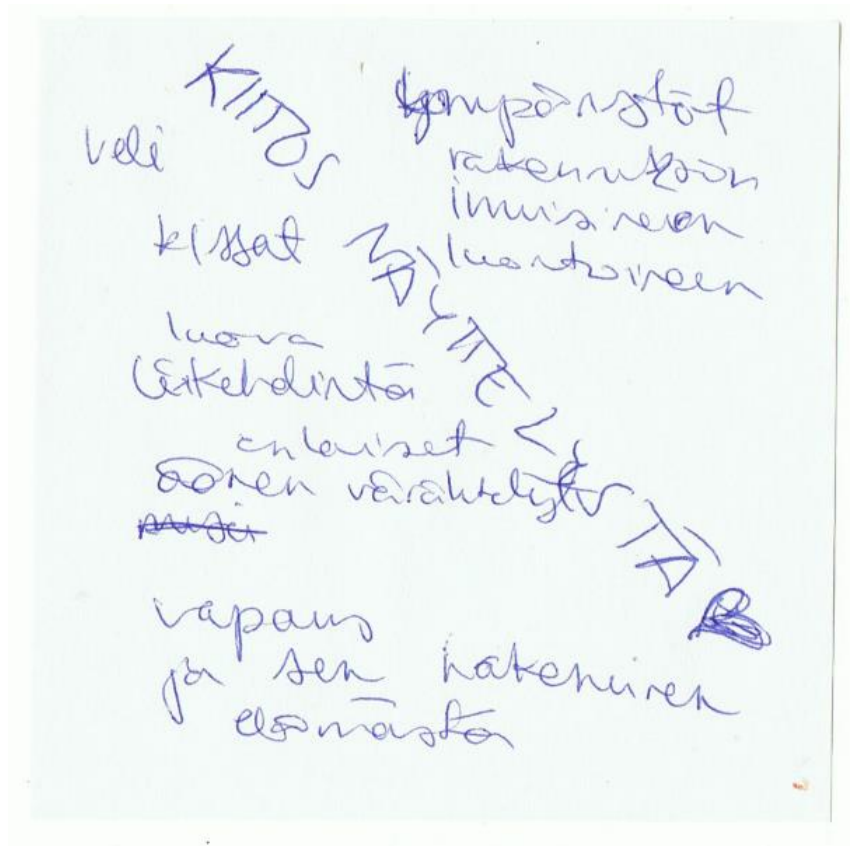 KIITOS NÄYTTELYSTÄ
veli
kissat
luova
liikehdintä
erilaiset
äänen värähtelyt
vapaus
ja sen hakeminen
elämästä
ympäristöt
rakennuksineen
ihmisineen
luontoineen